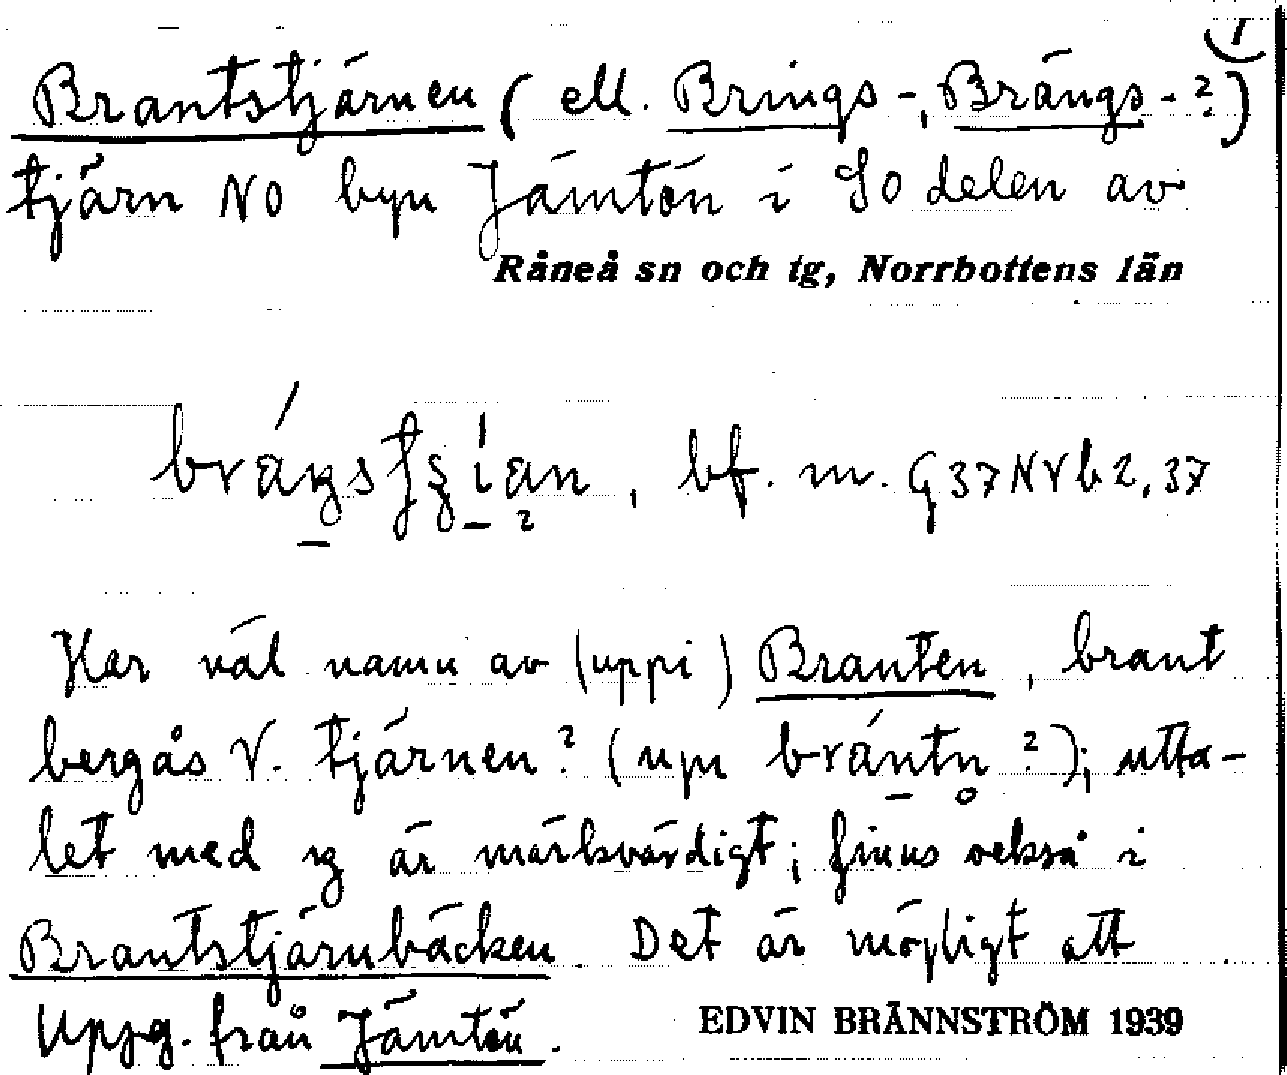 1
Brantstjärnen (ell. Brings-, Brängs-?)
tjärn NO byn Jämtön i SO delen av
Råneå sn och tg, Norrbottens län
bf. m. G37NVb2,37
Har väl namn av (uppi) Branten, brant
bergås V. tjärnen? (upi bräntn̥?); utta-
let med ŋ är märkvärdigt; finns också i
Brantstjärnbäcken. Det är möjligt att
Uppg. från Jämtön.
EDVIN BRÄNNSTRÖM 1939